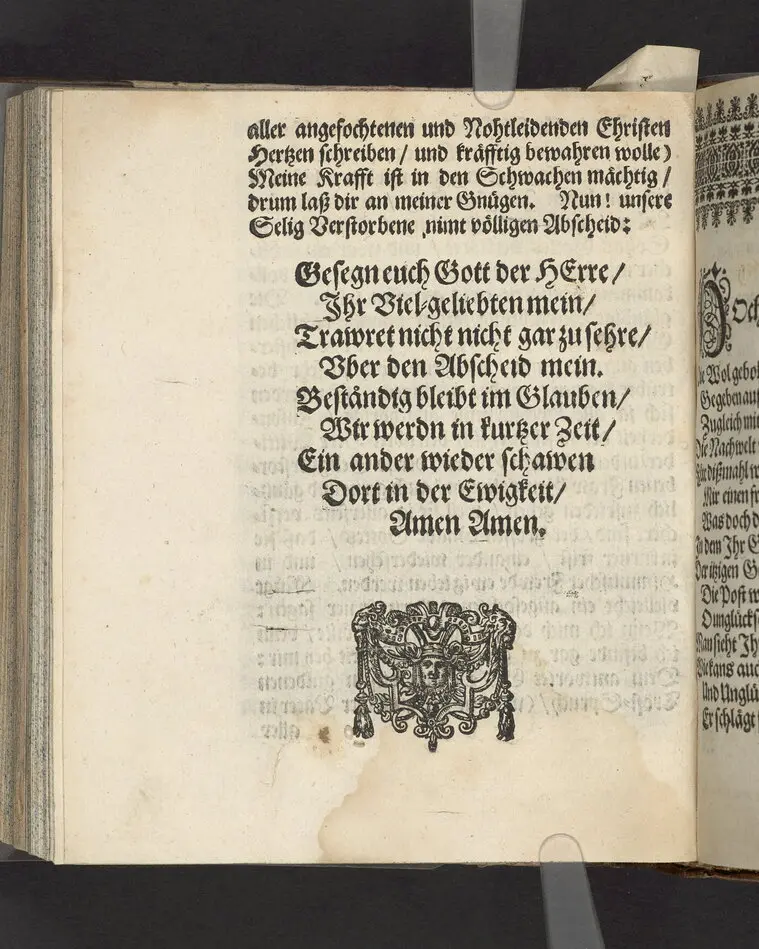 aller angefochtenen und Nohtleidenden Christen
Hertzen schreiben / und kräfftig bewahren wolle)
Meine Krafft ist in den Schwachen mächtig /
drum laß dir an meiner Gnügen. Nun! unsere
Selig Verstorbene nimt völligen Abscheid:
Gesegn euch Gott der HErre /
Ihr Viel-geliebten mein /
Trawret nicht nicht gar zu sehre /
Vber den Abscheid mein.
Beständig bleibt im Glauben /
Wir werdn in kurtzer Zeit /
Ein ander wieder schawen
Dort in der Ewigkeit /
Amen Amen.
Gegeben auf
Zugleich mit
Die Nachwelt
Mir einen fr
Was doch d
In dem Ihr G
Der itzigen G
Die Post w
Man sieht Ih
Und Unglü
Er schlägt